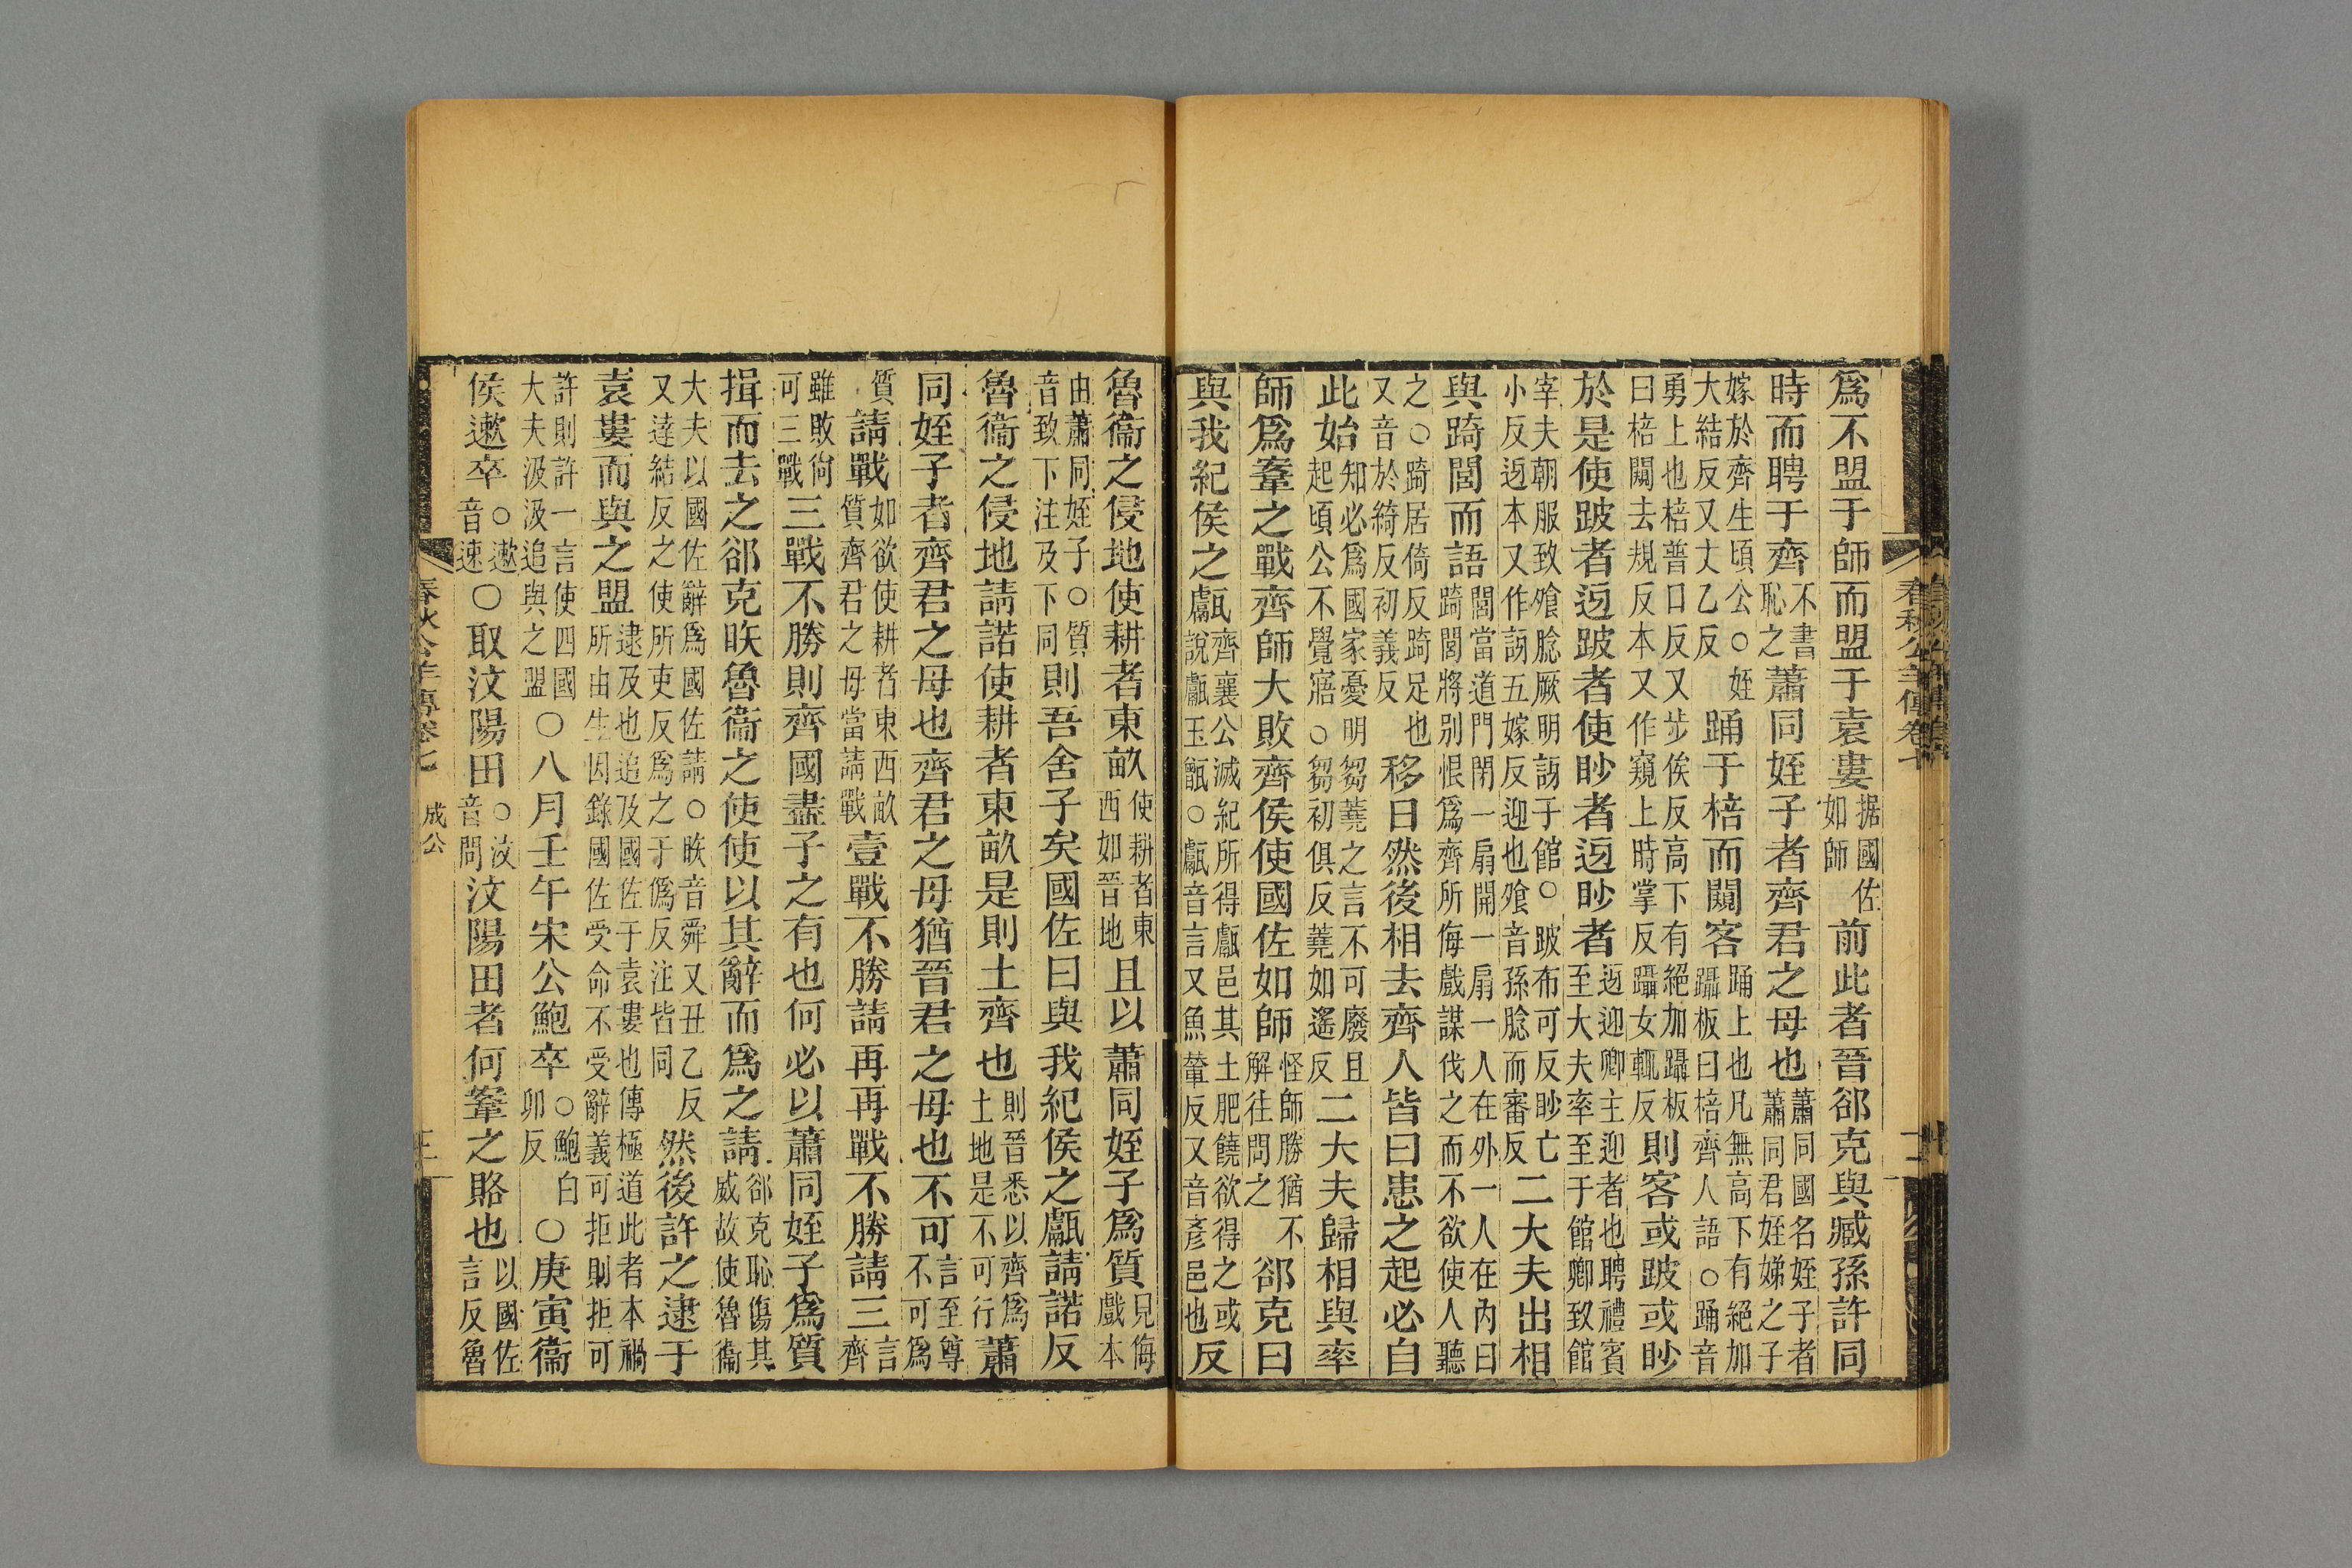 爲不盟于師而盟于袁婁据國佐如師前此者晉郤克與臧孫許同
時而聘于齊不書恥之蕭同姪子者齊君之母也蕭同國名姪子者蕭同君姪娣之子
嫁於齊生頃公○姪大結反又丈乙反踊于棓而闚客踊上也凡無高下有絕加躡板曰棓齊人語○踊音
勇上也棓普口反又步侯反高下有絕加躡板曰棓闚去規反本又作窺上時掌反躡女輒反則客或跛或眇
於是使跛者迓跛者使眇者迓眇者迓迎卿主迎者也聘禮賓至大夫率至于館卿致館
宰夫朝服致飧脍厥明訝于館○跛布可反眇亡小反迓本又作訝五嫁反迎也飧音孫脍而審反二大夫出相
與踦閭而語閭當道門閉一扇開一扇一人在外一人在內曰踦閭將別恨爲齊所侮戲謀伐之而不欲使人聽
之○踦居倚反踦足也又音於綺反初義反移日然後相去齊人皆曰患之起必自
此始知必爲國家憂明芻蕘之言不可廢且起頃公不覺寤○芻初俱反蕘如遙反二大夫歸相與率
師爲鞌之戰齊師大敗齊侯使國佐如師怪師勝猶不解往問之郤克曰
與我紀侯之甗齊襄公滅紀所得甗邑其土肥饒欲得之或說甗玉甑○甗音言又魚輦反又音彥邑也反
魯衞之侵地使耕者東畝使耕者東西如晉地且以蕭同姪子爲質見侮戲本
由蕭同姪子○質音致下注及下同則吾舍子矣國佐曰與我紀侯之甗請諾反
魯衞之侵地請諾使耕者東畝是則土齊也則晉悉以齊爲土地是不可行蕭
同姪子者齊君之母也齊君之母猶晉君之母也不可言至尊不可爲
質請戰如欲使耕者東西畝質齊君之母當請戰壹戰不勝請再再戰不勝請三言齊
雖敗尙可三戰三戰不勝則齊國盡子之有也何必以蕭同姪子爲質
揖而去之郤克眣魯衞之使使以其辭而爲之請郤克恥傷其威故使魯衞
大夫以國佐辭爲國佐請○眣音舜又丑乙反又達結反之使所吏反爲之于僞反注皆同然後許之逮于
袁婁而與之盟逮及也追及國佐于袁婁也傳極道此者本禍所由生因錄國佐受命不受辭義可拒則拒可
許則許一言使四國大夫汲汲追與之盟○八月壬午宋公鮑卒○鮑白卯反○庚寅衞
侯遬卒○遬音速○取汶陽田○汶音問汶陽田者何鞌之賂也以國佐言反魯
春秋公羊傳卷七
成公